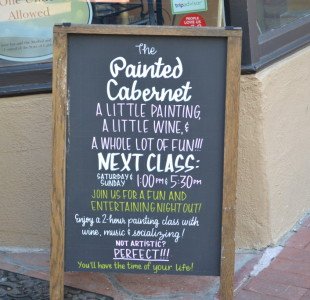 One C
Allowed
tripadvisor
PEOPLE LOVE US
The
Painted
Cabernet
A LITTLE PAINTING,
A LITTLE WINE, &
A WHOLE LOT OF FUN!!!
NEXT CLASS:
SATURDAY &
SUNDAY 1:00PM & 5:30PM
JOIN US FOR A FUN AND
ENTERTAINING NIGHT OUT!
Enjoy a 2-hour painting class with
wine, music & socializing!
NOT ARTISTIC?
PERFECT!!!
You'll have the time of your life!